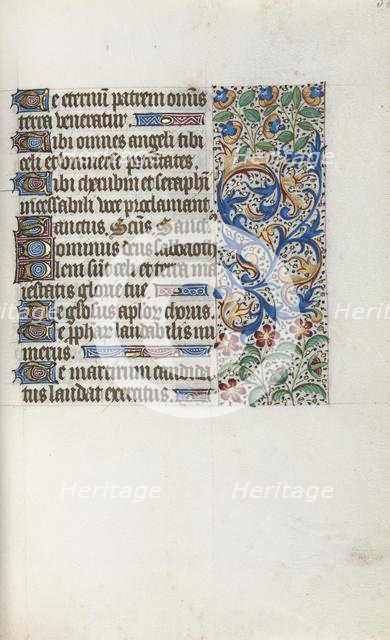 Te eternum patrem omnis
terra veneratur.
Tibi omnes angeli tibi
celi et universe potestates.
Tibi cherubim et seraphim
incessabili voce proclamant
Sanctus. Scūs. Sanct
Dominus deus sabaoth
Pleni sūt celi et terra ma
iestatis glorie tue
Te gloriosus aplor chorus.
Te prophar laudabilis nu
merus.
Te martirum candida
tus laudat exercitus.
Heritage Heritage Heritage
Heritage Heritage Heritage